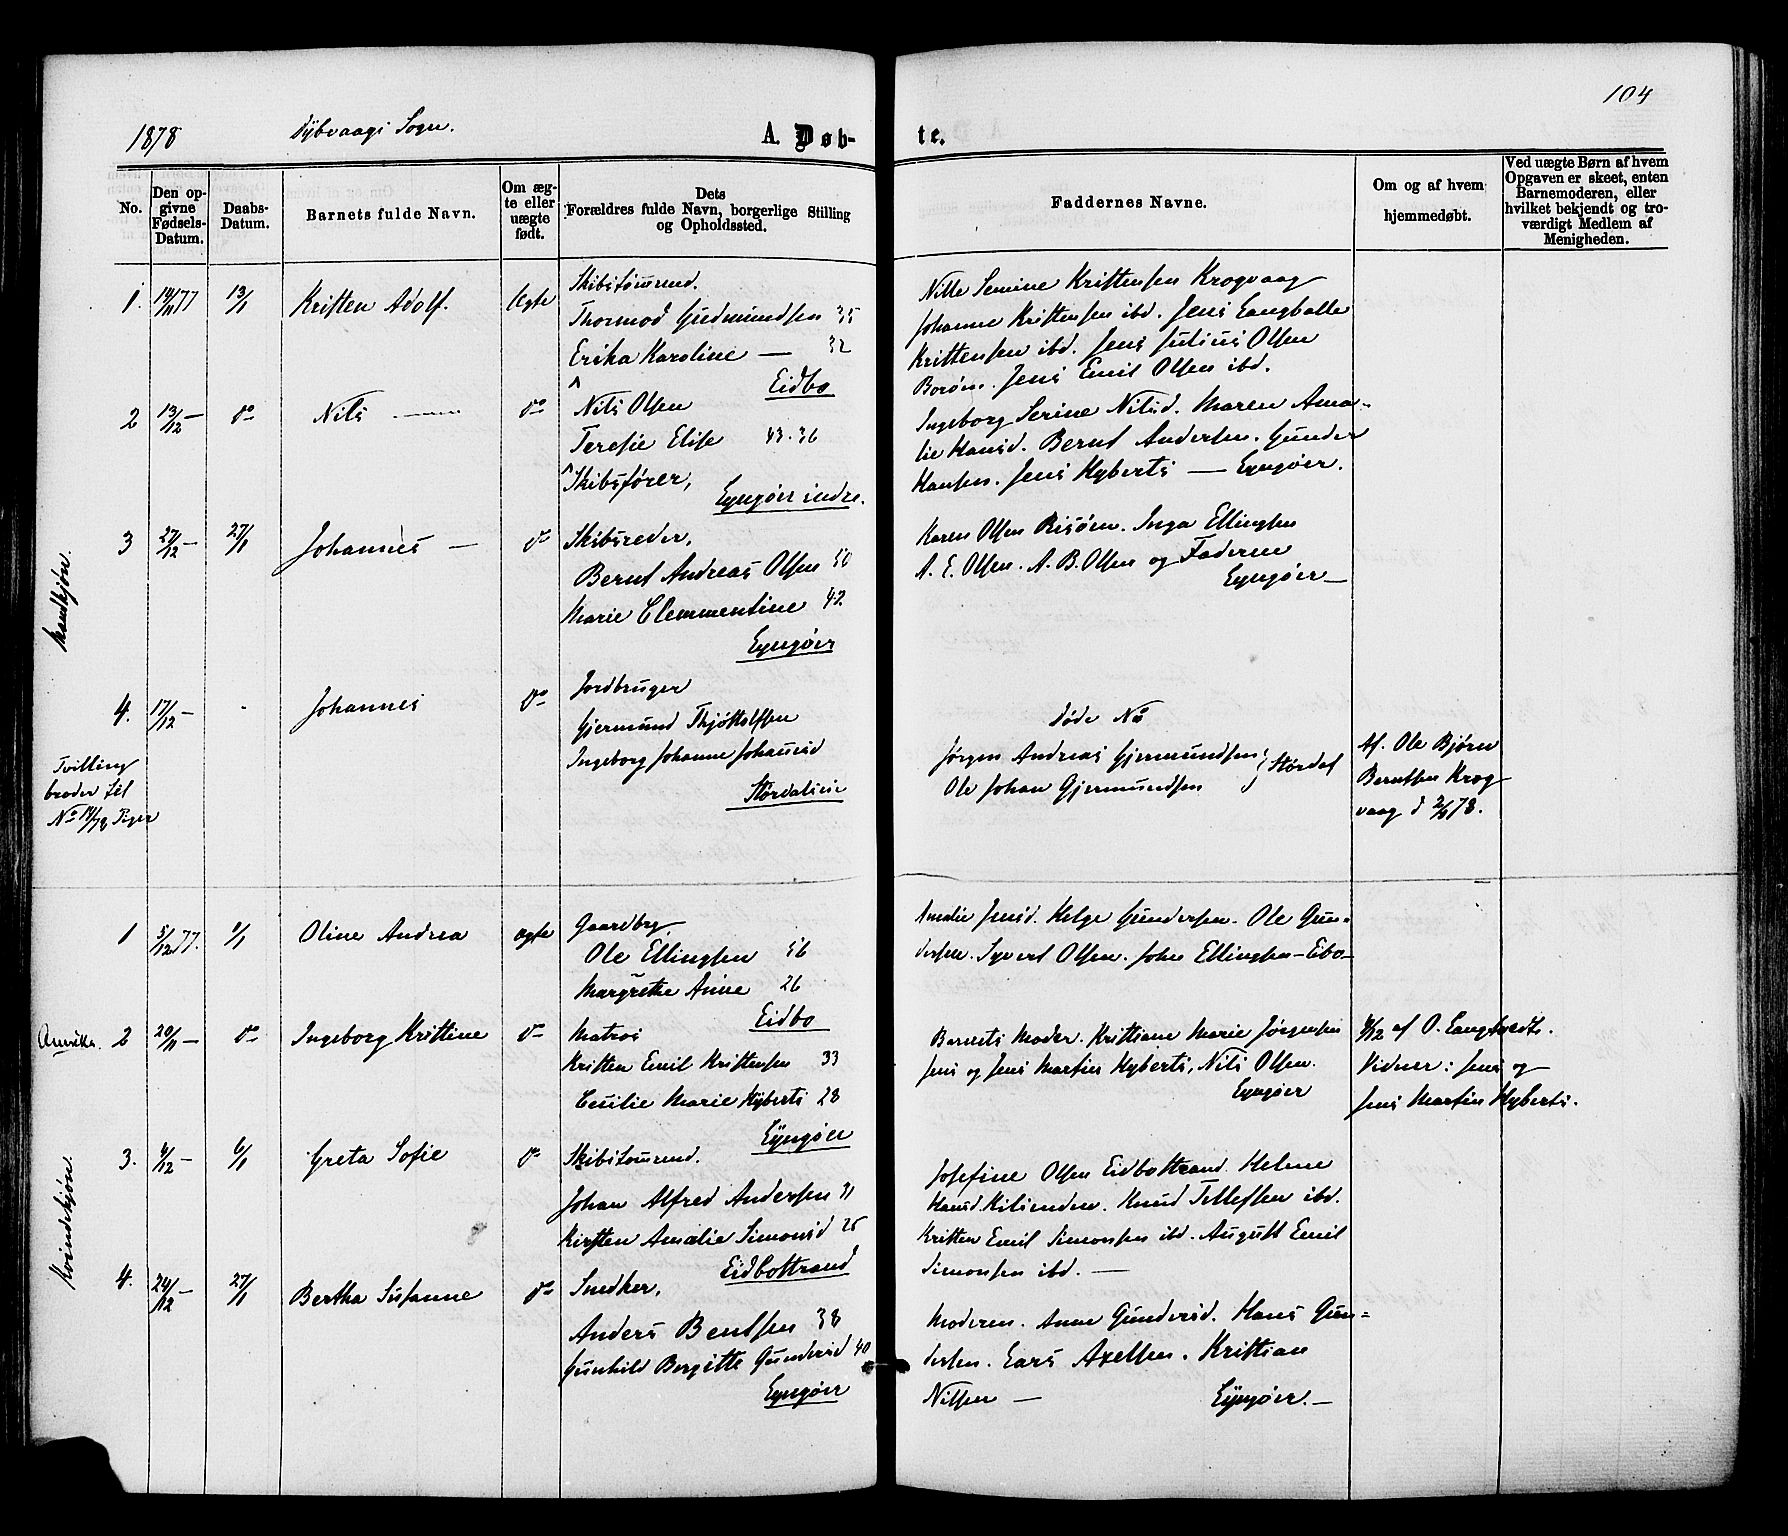 104
1878 Dybvaags Sogn. A. Døbte.
No.
Den opgivne Fødsels-Datum.
Daabs-Datum.
Barnets fulde Navn.
Om ægte eller uægte født.
Dets Forældres fulde Navn, borgerlige Stilling og Opholdssted.
Faddernes Navne.
Om og af hvem hjemmedøbt.
Ved uægte Børn af hvem Opgaven er skeet, enten Barnemoderen, eller hvilket bekjendt og troværdigt Medlem af Menigheden.
Mandkjøn.
1. 14/11 77 13/1 Kristen Adolf. Ægte
Skibstømmend.
Thormod Gudmundsen 35
Erika Karoline — 32
Eidbo
Nille Semine Kristensen Krogvaag
Johanne Kristensen ibd. Jens Langballe
Kristensen ibd. Jens Julius Olsen
Borøen. Jens Emil Olsen ibd.
2 13/12 — do Nils — do
Nils Olsen
Teresie Elise 43. 36
Skibsfører,
Lyngøer indre.
Ingeborg Serine Nilsd. Maren Ama-
lie Hansd. Bernt Andersen. Gunder
Hansen. Jens Hyberts — Lyngøer.
3 27/12 — 27/1 Johannes — do
Skibsreder,
Bernt Andreas Olsen 50
Marie Clemmentine 42
Lyngøer
Karen Olsen Risøen. Inga Ellingsen
A. E. Olsen. A. B. Olsen og Faderen
Lyngøer —
4. 17/12 — - Johannes do
Tvilling
broder til
No 14/78 Piger
Jordbruger
Gjermund Thjøstolfsen
Ingeborg Johanne Johannesd
Størdalsiea
Døde No
Jørgen Andreas Gjermundsen
Ole Johan Gjermundsen } Størdal
Af. Ole Bjørn
Berntsen Krog
vaag d 2/1 78.
Kvindekjøn.
1 5/12 77. 1/1 Oline Andrea ægte
Gaardbr,
Ole Ellingsen 56
Margrethe Anne 26
Eidbo
Amalie Jensd. Helge Gundersen. Ole Gun-
dersen. Syvert Olsen. John Ellingsen — Eibo —
Amerika. 2 20/11 — do Ingeborg Kristine do
Matros
Kristen Emil Kristensen 33
Cecilie Marie Hyberts 28
Lyngøer
Barnets Moder. Kristiane Marie Jørgensen
Jens og Jens Martin Hyberts, Nils Olsen.
Lyngøer
/12 af O. Langtvedt.
Vidner: Jens og
Jens Martin Hyberts.
3. 4/12 — 6/1 Greta Sofie do
Skibstømmend.
Johan Alfred Andersen 31
Kirsten Amalie Simonsd 25
Eidbostrand
Josefine Olsen Eidbostrand. Helene
Hansd. Kilienden. Knud Tellefsen ibd.
Kristen Emil Simonsen ibd. August Emil
Simonsen ibd. —
4. 24/12 — 27/1 Bertha Susanne do
Snedker,
Anders Bentsen 38
Gunhild Bergitte Gundersd 40
Lyngøer
Moderen. Anne Gundersd. Hans Gun-
dersen. Lars Axelsen. Kristian
Nilsen — Lyngøer. —